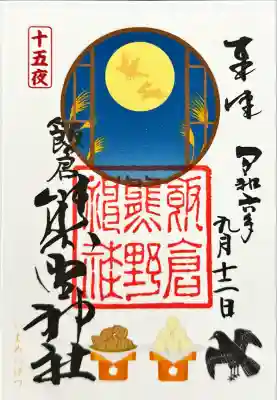 奉拝
令和六年
九月十二日
十五夜
飯倉
熊野神社
飯倉
熊野
神社